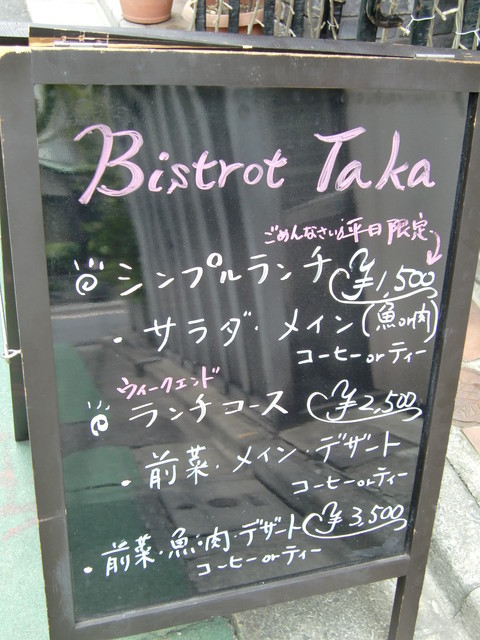 Bistrot Taka
ごめんなさい平日限定
シンプルランチ ¥1,500
・サラダ・メイン(魚or肉)
コーヒーorティー
ウィークエンド
ランチコース ¥2,500
・前菜・メイン・デザート
コーヒーorティー
・前菜・魚・肉・デザート ¥3,500
コーヒーorティー